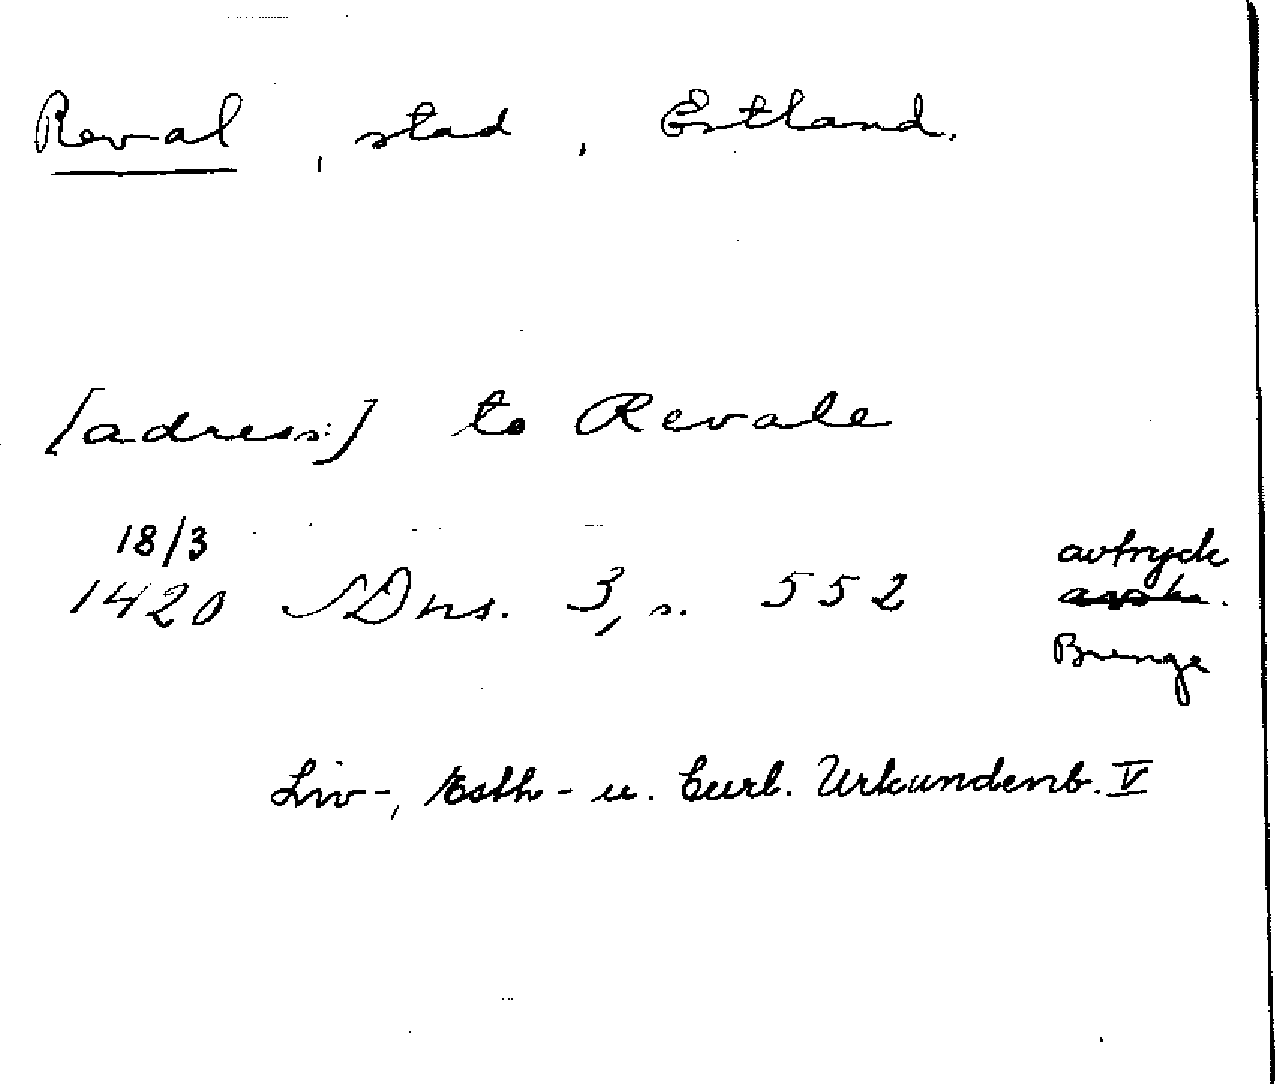 Reval, stad, Estland.
[adress:] to Revale
18/3
avtryck
1420 SDns. 3, s. 552
Brenge
Liv-, Esth- u. Curl. Urkundenb. V